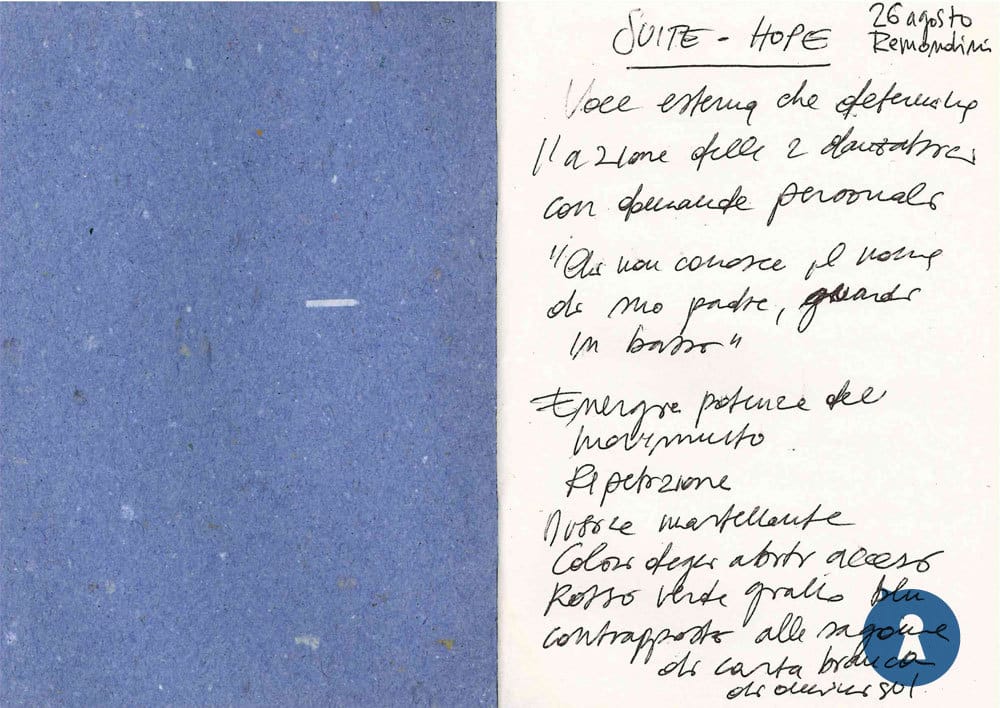 SUITE - HOPE
26 agosto
Remondini
Voce esterna che determina
l'azione delle 2 danzatrici
con domande personali
"Chi non conosce il nome
di mio padre, guardi
in basso"
Energia potenza del
movimento
Ripetizione
Musica martellante
Colori degli abiti acceso
Rosso verde giallo blu
contrapposto alle sagome
di carta bianca
di